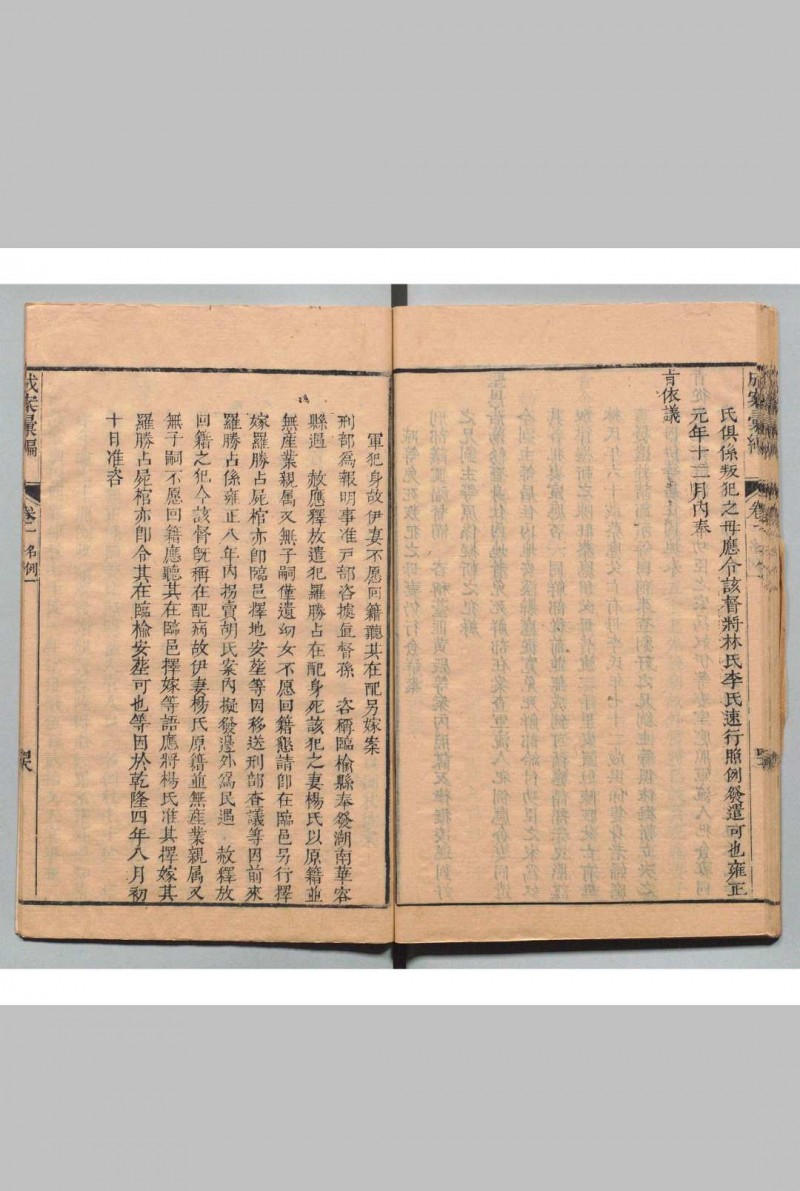 成案彙編
卷二
氏俱係叛犯之母應令該督將林氏李氏速行照例發遣可也雍正
元年十二月內奉
旨依議
軍犯身故伊妻不愿回籍聽其在配另嫁案
刑部爲報明事准戸部咨據直督孫 咨稱臨榆縣奉發湖南華容
縣遇 赦應釋放遣犯羅勝占在配身死該犯之妻楊氏以原籍並
無産業親属又無子嗣僅遺幼女不愿回籍懇請即在臨邑另行擇
嫁羅勝占屍棺亦即臨邑擇地安塟等因移送刑部查議等因前來
羅勝占係雍正八年內拐賣胡氏案內擬發邊外爲民遇 赦釋放
回籍之犯今該督旣稱在配病故伊妻楊氏原籍並無産業親属又
無子嗣不愿回籍應聽其在臨邑擇嫁等語應將楊氏准其擇嫁其
羅勝占屍棺亦卽令其在臨榆安塟可也等因於乾隆四年八月初
十日准咨
成案彙編
卷二 名例一